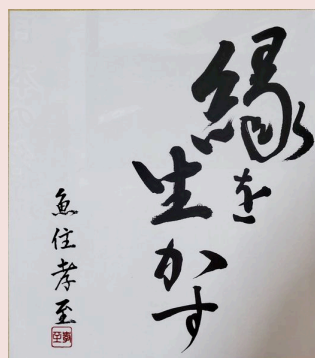 縁を
生かす
魚住孝至